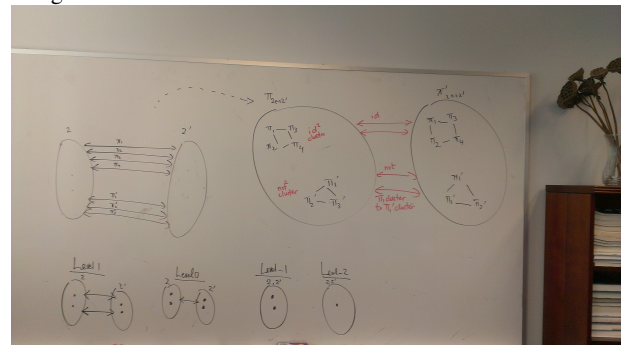 2
2'
π₁
π₂
π₃
π₄
π₁'
π₂'
π₃'
Π₂↔₂'
π₁ — π₃
π₂ — π₄
id² cluster
not² cluster
π₁'
π₂' — π₃'
id
not
π₁ cluster
to π₁' cluster
π₁ — π₃
π₂ — π₄
π₁'
Level 1
2
2'
Level 0
2
2'
Level -1
2, 2'
Level -2